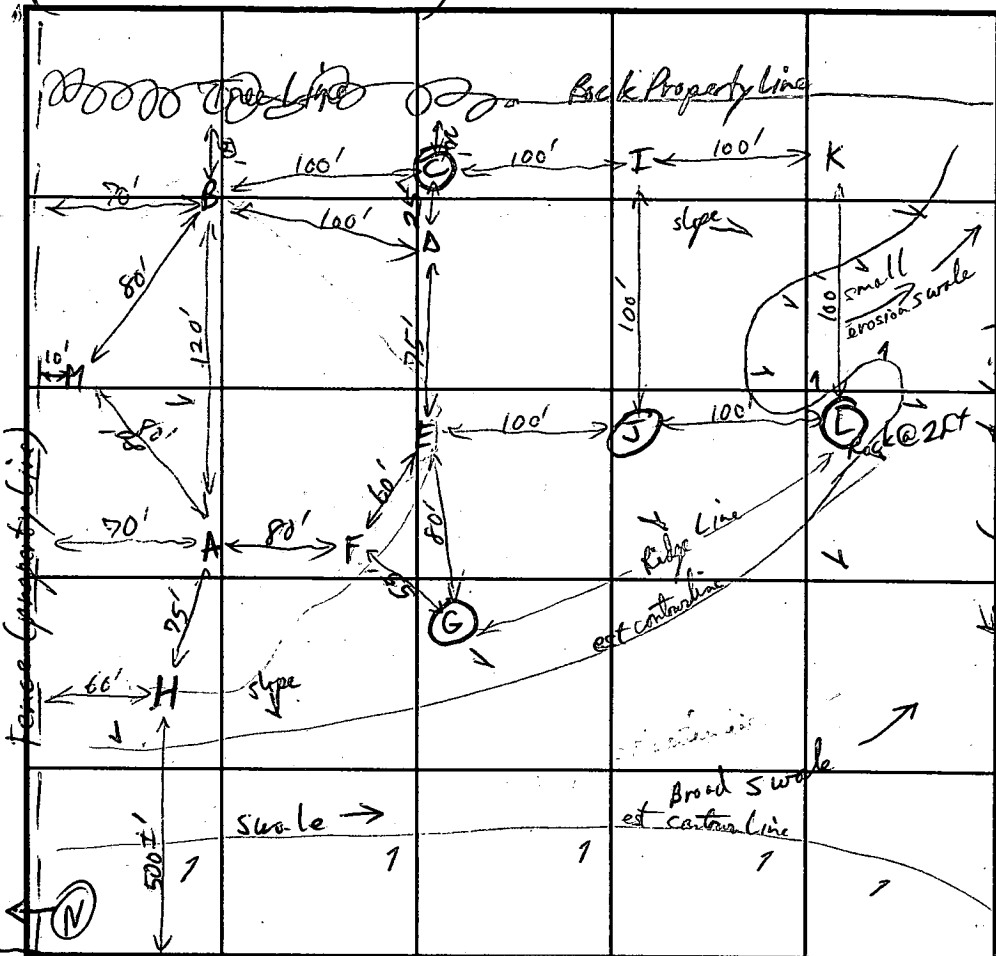 Tree Line
Back Property Line
100'
C
100'
I
100'
K
70'
B
25'
100'
D
slope
80'
120'
75'
100'
100'
small
erosion swale
10'
M
80'
E
100'
J
100'
L
Rock @ 2Ft
70'
A
80'
F
60'
80'
Ridge Line
75'
55'
G
est contour line
60'
H
slope
Broad Swale
Swale
est contour Line
500±'
N